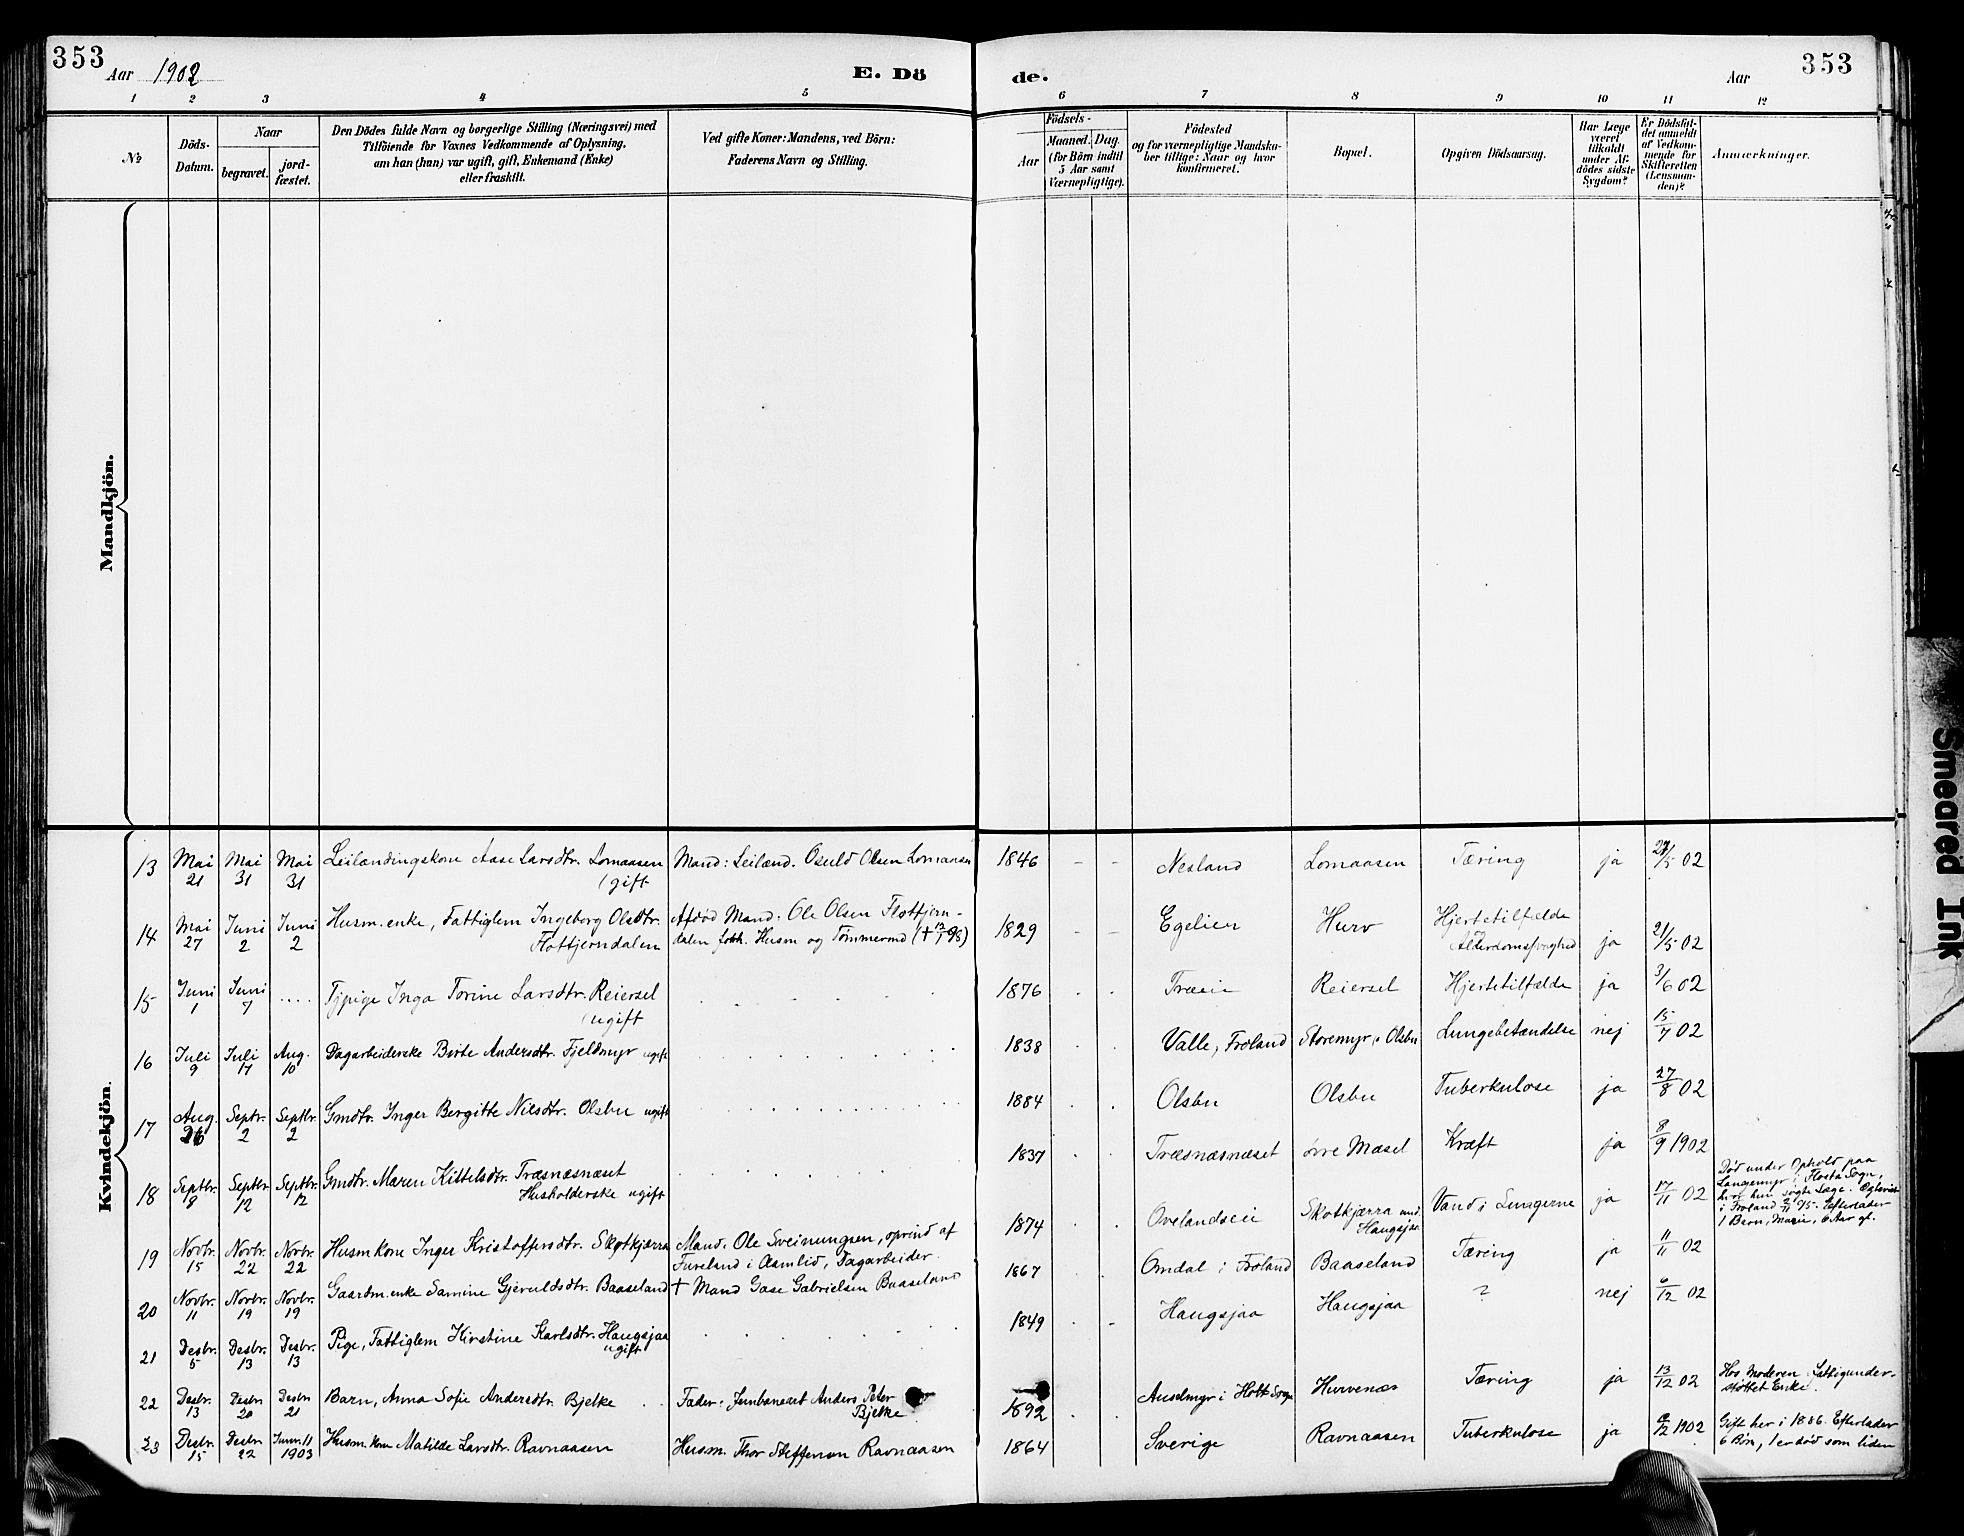 353
Aar 1902
E. Dö
de.
Aar
353
1 2 3 4 5 6 7 8 9 10 11 12
№
Döds-
Datum.
Naar
begravet.
jord-
fæstet.
Den Dödes fulde Navn og borgerlige Stilling (Næringsvei) med
Tilföiende for Voxnes Vedkommende af Oplysning,
om han (hun) var ugift, gift, Enkemand (Enke)
eller fraskilt.
Ved gifte Koner: Mandens, ved Börn:
Faderens Navn og Stilling.
Födsels-
Aar
Maaned.
Dag.
(for Börn indtil
5 Aar samt
Værnepligtige).
Födested
og for værnepligtige Mandska-
ber tillige: Naar og hvor
konfirmeret.
Bopæl.
Opgiven Dödsaarsag.
Har Læge
været
tilkaldt
under Af-
dödes sidste
Sygdom?
Er Dödsfal-
det anmeldt
af Vedkom-
mende for
Skifteretten
(Lensman-
den)?
Anmærkninger.
Mandkjön.
Kvindekjön.
13 Mai 21 Mai 31 Mai 31 Leilændingskone Aase Larsdtr. Lomaasen Mand: Leilænd. Osuld Olsen Lomaasen 1846 - - Nesland Lomaasen Tæring ja /5 02
gift
14 Mai 27 Juni 2 Juni 2 Husm. enke, Fattiglem Ingeborg Olsdtr. Afdöd Mand: Ole Olsen Flottjern- 1829 - - Egelien Hurv Hjertetilfælde
Flottjerndalen dalen forh. Husm og Tömmermd Alderdomssvaghed ja 21/5 02
15 Juni 1 Juni 7 .... Tjpige Inga Torine Larsdtr. Reiersel 1876 Træeie Reiersel Hjertetilfælde ja 3/6 02
ugift
16 Juli 9 Juli 17 Aug. 10 Dagarbeiderske Birte Andersdtr. Fjeldmyr ugift 1838 Valle, Froland Storemyr, Olsbu Lungebetændelse nej 15/7 02
17 Aug. 26 Septr. 2 Septbr. 2 Gmdtr. Inger Bergitte Nilsdtr. Olsbu ugift 1884 Olsbu Olsbu Tuberkulose ja 27/8 02
18 Septbr. 8 Septbr. 12 Septbr. 12 Gmdtr. Maren Kittelsdtr. Træsnæsnæset 1837 Træsnæsnæset övre Mæsel Kræft ja 8/9 1902
Husholderske ugift
19 Novbr. 15 Novbr. 22 Novbr. 22 Husmkone Inger Kristoffersdtr. Skotkjærra Mand: Ole Sveinungsen, oprind af 1874 Ovelandseie Skotkjærra und. Vand i Lungerne ja 17/11 02 Död under Ophold paa
Haugsjaa Langemyr i Flosta Sogn,
Fureland i Aamlid, Dagarbeider. hvor hun sögte Læge.
i Froland 95. Efterlader
1 Barn, Marie, 6 Aar gl.
20 Novbr. 11 Novbr. 19 Novbr. 19 Gaardm.enke Samine Gjeruldsdtr. Baaseland † Mand Gase Gabrielsen Baaseland 1867 Omdal i Froland Baaseland Tæring ja 11/11 02
21 Desbr. 5 Desbr. 13 Desbr. 13 Pige, Fattiglem Kirstine Karlsdtr. Haugsjaa 1849 Haugsjaa Haugsjaa ? nej 6/12 02
ugift
22 Desbr. 13 Desbr. 20 Desbr. 21 Barn, Anna Sofie Andersdtr. Bjelke Fader: Jernbanearb Anders Peter 1892 Auselmyr i Holt Sogn Hurvenæs Tæring ja 13/12 02 Hos Moderen. Fattigunder-
Bjelke. stöttet Enke.
23 Desbr. 15 Desbr. 22 Januar 11 1903 Husm.kone Matilde Larsdtr. Ravnaasen Husm. Thor Steffensen Ravnaasen 1864 Sverige Ravnaasen Tuberkulose ja /12 1902 Gift her i 1886. Efterlader
6 Börn, 1 er död som liden
Smeared Ink